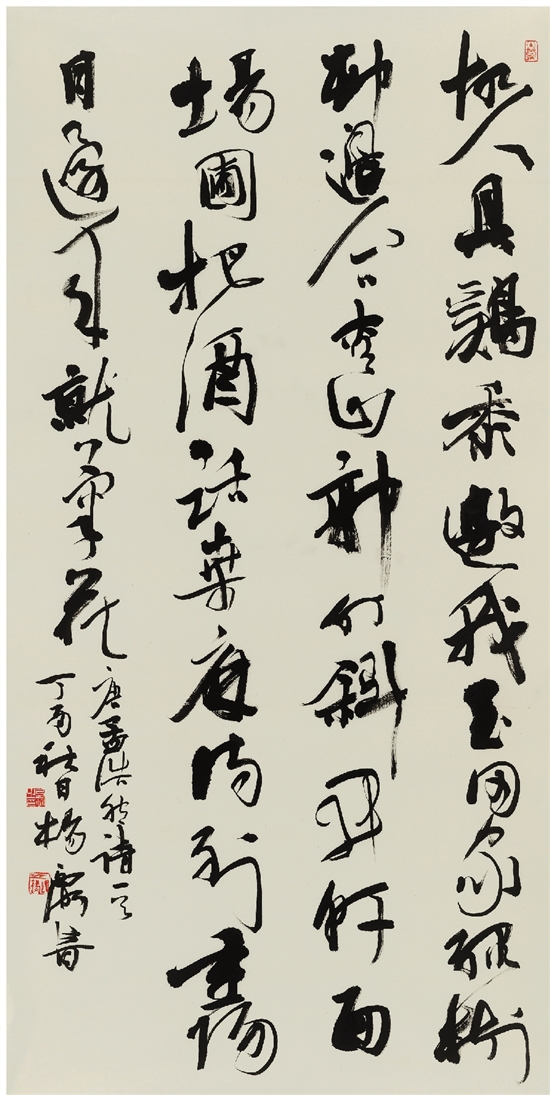 故人具鷄黍邀我至田家綠樹
村邊合青山郭外斜開軒面
場圃把酒話桑麻待到重陽
日還來就菊花
唐孟浩然詩一首
丁酉秋日楊書